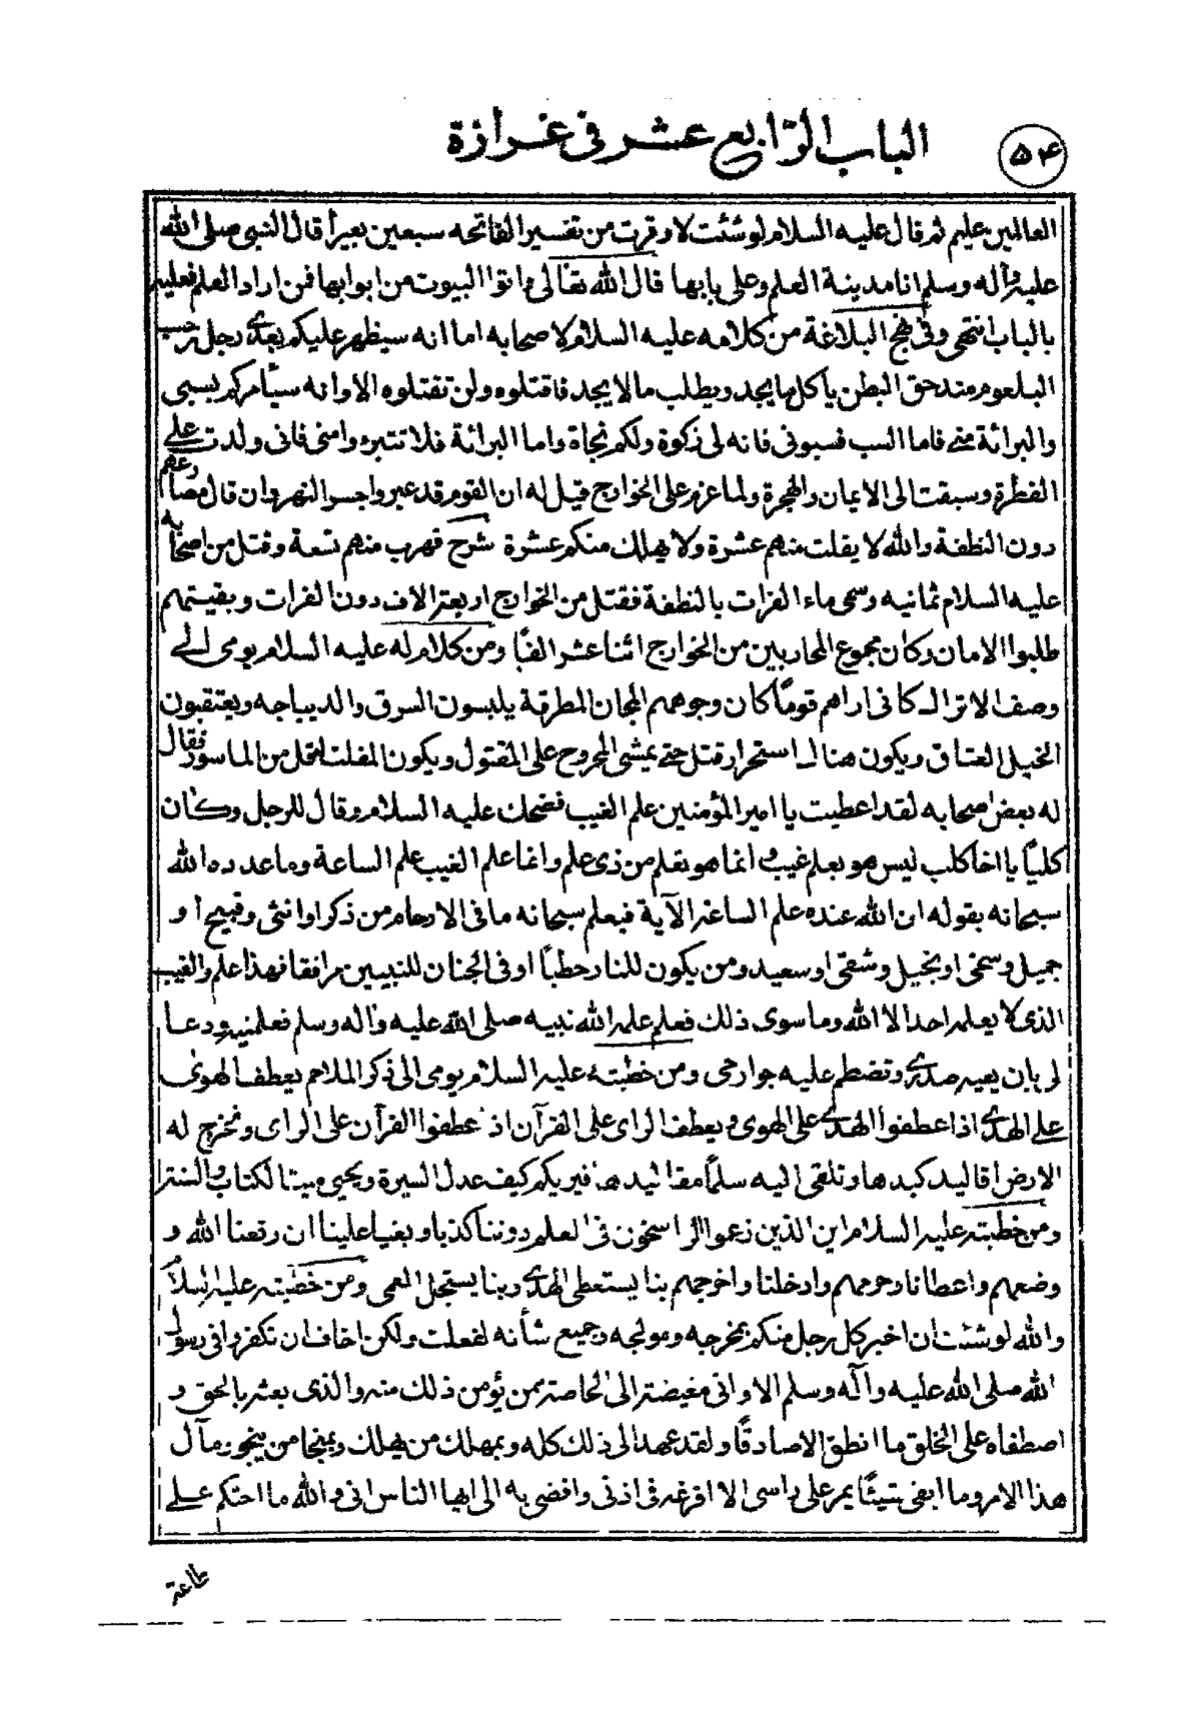 ٥٤
الباب الرابع عشر في غزارة
العالمين عليم ثم قال عليه السلام لو شئت لاوقرت من تفسير الفاتحه سبعين بعيرا قال النبي صلى الله
عليه وآله وسلم انا مدينة العلم وعلي بابها قال الله تعالى واتوا البيوت من ابوابها فمن اراد العلم فعليه
بالباب انتهى وفي نهج البلاغة من كلامه عليه السلام لاصحابه اما انه سيظهر عليكم بعدي رجل رحب
البلعوم مندحق البطن ياكل ما يجد ويطلب ما لا يجد فاقتلوه ولن تقتلوه الا وانه سيأمركم بسبى
والبرائة منى فاما السب فسبونى فانه لى زكوة ولكم نجاة واما البرائة فلا تتبرءوا منى فانى ولدت على
الفطرة وسبقت الى الايمان والهجرة ولما عزم على الخوارج قيل له ان القوم قد عبروا جسر النهروان قال مصارعهم
دون النطفة والله لا يفلت منهم عشرة ولا يهلك منكم عشرة شرح فهرب منهم تسعة وقتل من اصحابه
عليه السلام ثمانيه وسمى ماء الفرات بالنطفة فقتل من الخوارج اربعة الاف دون الفرات وبقيتهم
طلبوا الامان وكان مجموع المحاربين من الخوارج اثنا عشر الفًا ومن كلام له عليه السلام يومى الى
وصف الاتراك كانى اراهم قومًا كان وجوههم المجان المطرقة يلبسون السرق والديباجه ويعتقبون
الخيل العتاق ويكون هناك استحرار قتل حتى يمشى المجروح على المقتول ويكون المفلت اقل من الماسور فقال
له بعض اصحابه لقد اعطيت يا امير المؤمنين علم الغيب فضحك عليه السلام وقال للرجل وكان
كلبيًا يا اخا كلب ليس هو بعلم غيب وانما هو تعلم من ذى علم وانما علم الغيب علم الساعة وما عدده الله
سبحانه بقوله ان الله عنده علم الساعة الآية فيعلم سبحانه ما فى الارحام من ذكر او انثى وقبيح او
جميل وسخى او بخيل وشقى او سعيد ومن يكون للنار حطبًا او فى الجنان للنبيين مرافقا فهذا علم الغيب
الذى لا يعلمه احد الا الله وما سوى ذلك فعلم علمه الله نبيه صلى الله عليه وآله وسلم فعلمنيه ودعا
لى بان يعيه صدرى وتضطم عليه جوارحى ومن خطبته عليه السلام يومى الى ذكر الملاحم يعطف الهوى
على الهدى اذا عطفوا الهدى على الهوى ويعطف الراى على القرآن اذ عطفوا القرآن على الراى وتخرج له
الارض افاليذ كبدها وتلقى اليه سلمًا مقاليدها فيريكم كيف عدل السيرة ويحيى ميت الكتاب والسنة
ومن خطبته عليه السلام اين الذين زعموا الراسخون فى العلم دوننا كذبا وبغيا علينا ان رفعنا الله و
وضعهم واعطانا وحرمهم وادخلنا واخرجهم بنا يستعطى الهدى وبنا يستجلى العمى ومن خطبته عليه السلام
والله لو شئت ان اخبر كل رجل منكم بمخرجه ومولجه وجميع شأنه لفعلت ولكن اخاف ان تكفروا فى رسول
الله صلى الله عليه وآله وسلم الا وانى مفيضه الى الخاصة ممن يؤمن ذلك منه والذى بعثه بالحق و
اصطفاه على الخلق ما انطق الا صادقًا ولقد عهد الى ذلك كله وبمهلك من يهلك وبمنجا من ينجو ومآل
هذا الامر وما ابقى شيئًا يمر على راسى الا افرغه فى اذنى وافضى به الى ايها الناس انى والله ما احثكم على
طاعة